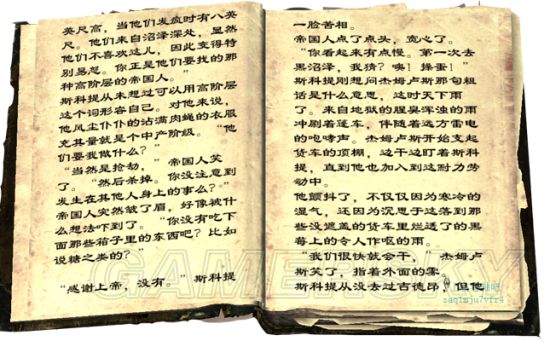 英尺高，当他们发疯时有八英
尺。他们来自沼泽深处，显然
他们不喜欢这儿，因此变得特
别易怒。你正是他们要找的那
种高阶层的帝国人。”
斯科提从未想过可以用高阶层
这个词形容自己。对他来说，
他风尘仆仆的沾满肉蝇的衣服
充其量就是个中产阶级。“他
们要我做什么？”
“当然是抢劫，”帝国人笑
了。“然后杀掉。你没注意到
发生在其他人身上的事么？”
帝国人突然皱了眉，好像被什
么想法吓到了。“你没有吃下
面那些箱子里的东西吧？比如
说糖之类的？”
“感谢上帝，没有。”斯科提
一脸苦相。
帝国人点了点头，宽心了。
“你看起来有点慢。第一次去
黑沼泽，我猜？噢！操蛋！”
斯科提刚想问杰姆卢斯那句粗
话是什么意思，这时天下雨
了。来自地狱的腥臭浑浊的雨
冲刷着篷车，伴随着远方雷电
的咆哮声。杰姆卢斯开始支起
货车的顶棚，边干边盯着斯科
提，直到他也加入到这耐力劳
动中。
他颤抖了，不仅仅因为寒冷的
湿气，还因为沉思于这落到那
些没遮盖的货车里烂透了的黑
莓上的令人作呕的雨。
“我们很快就会干，”杰姆卢
斯笑了，指着外面的雾。
斯科提从没去过吉德昂，但他
GAMERSKY
zaq1mju7vfr4